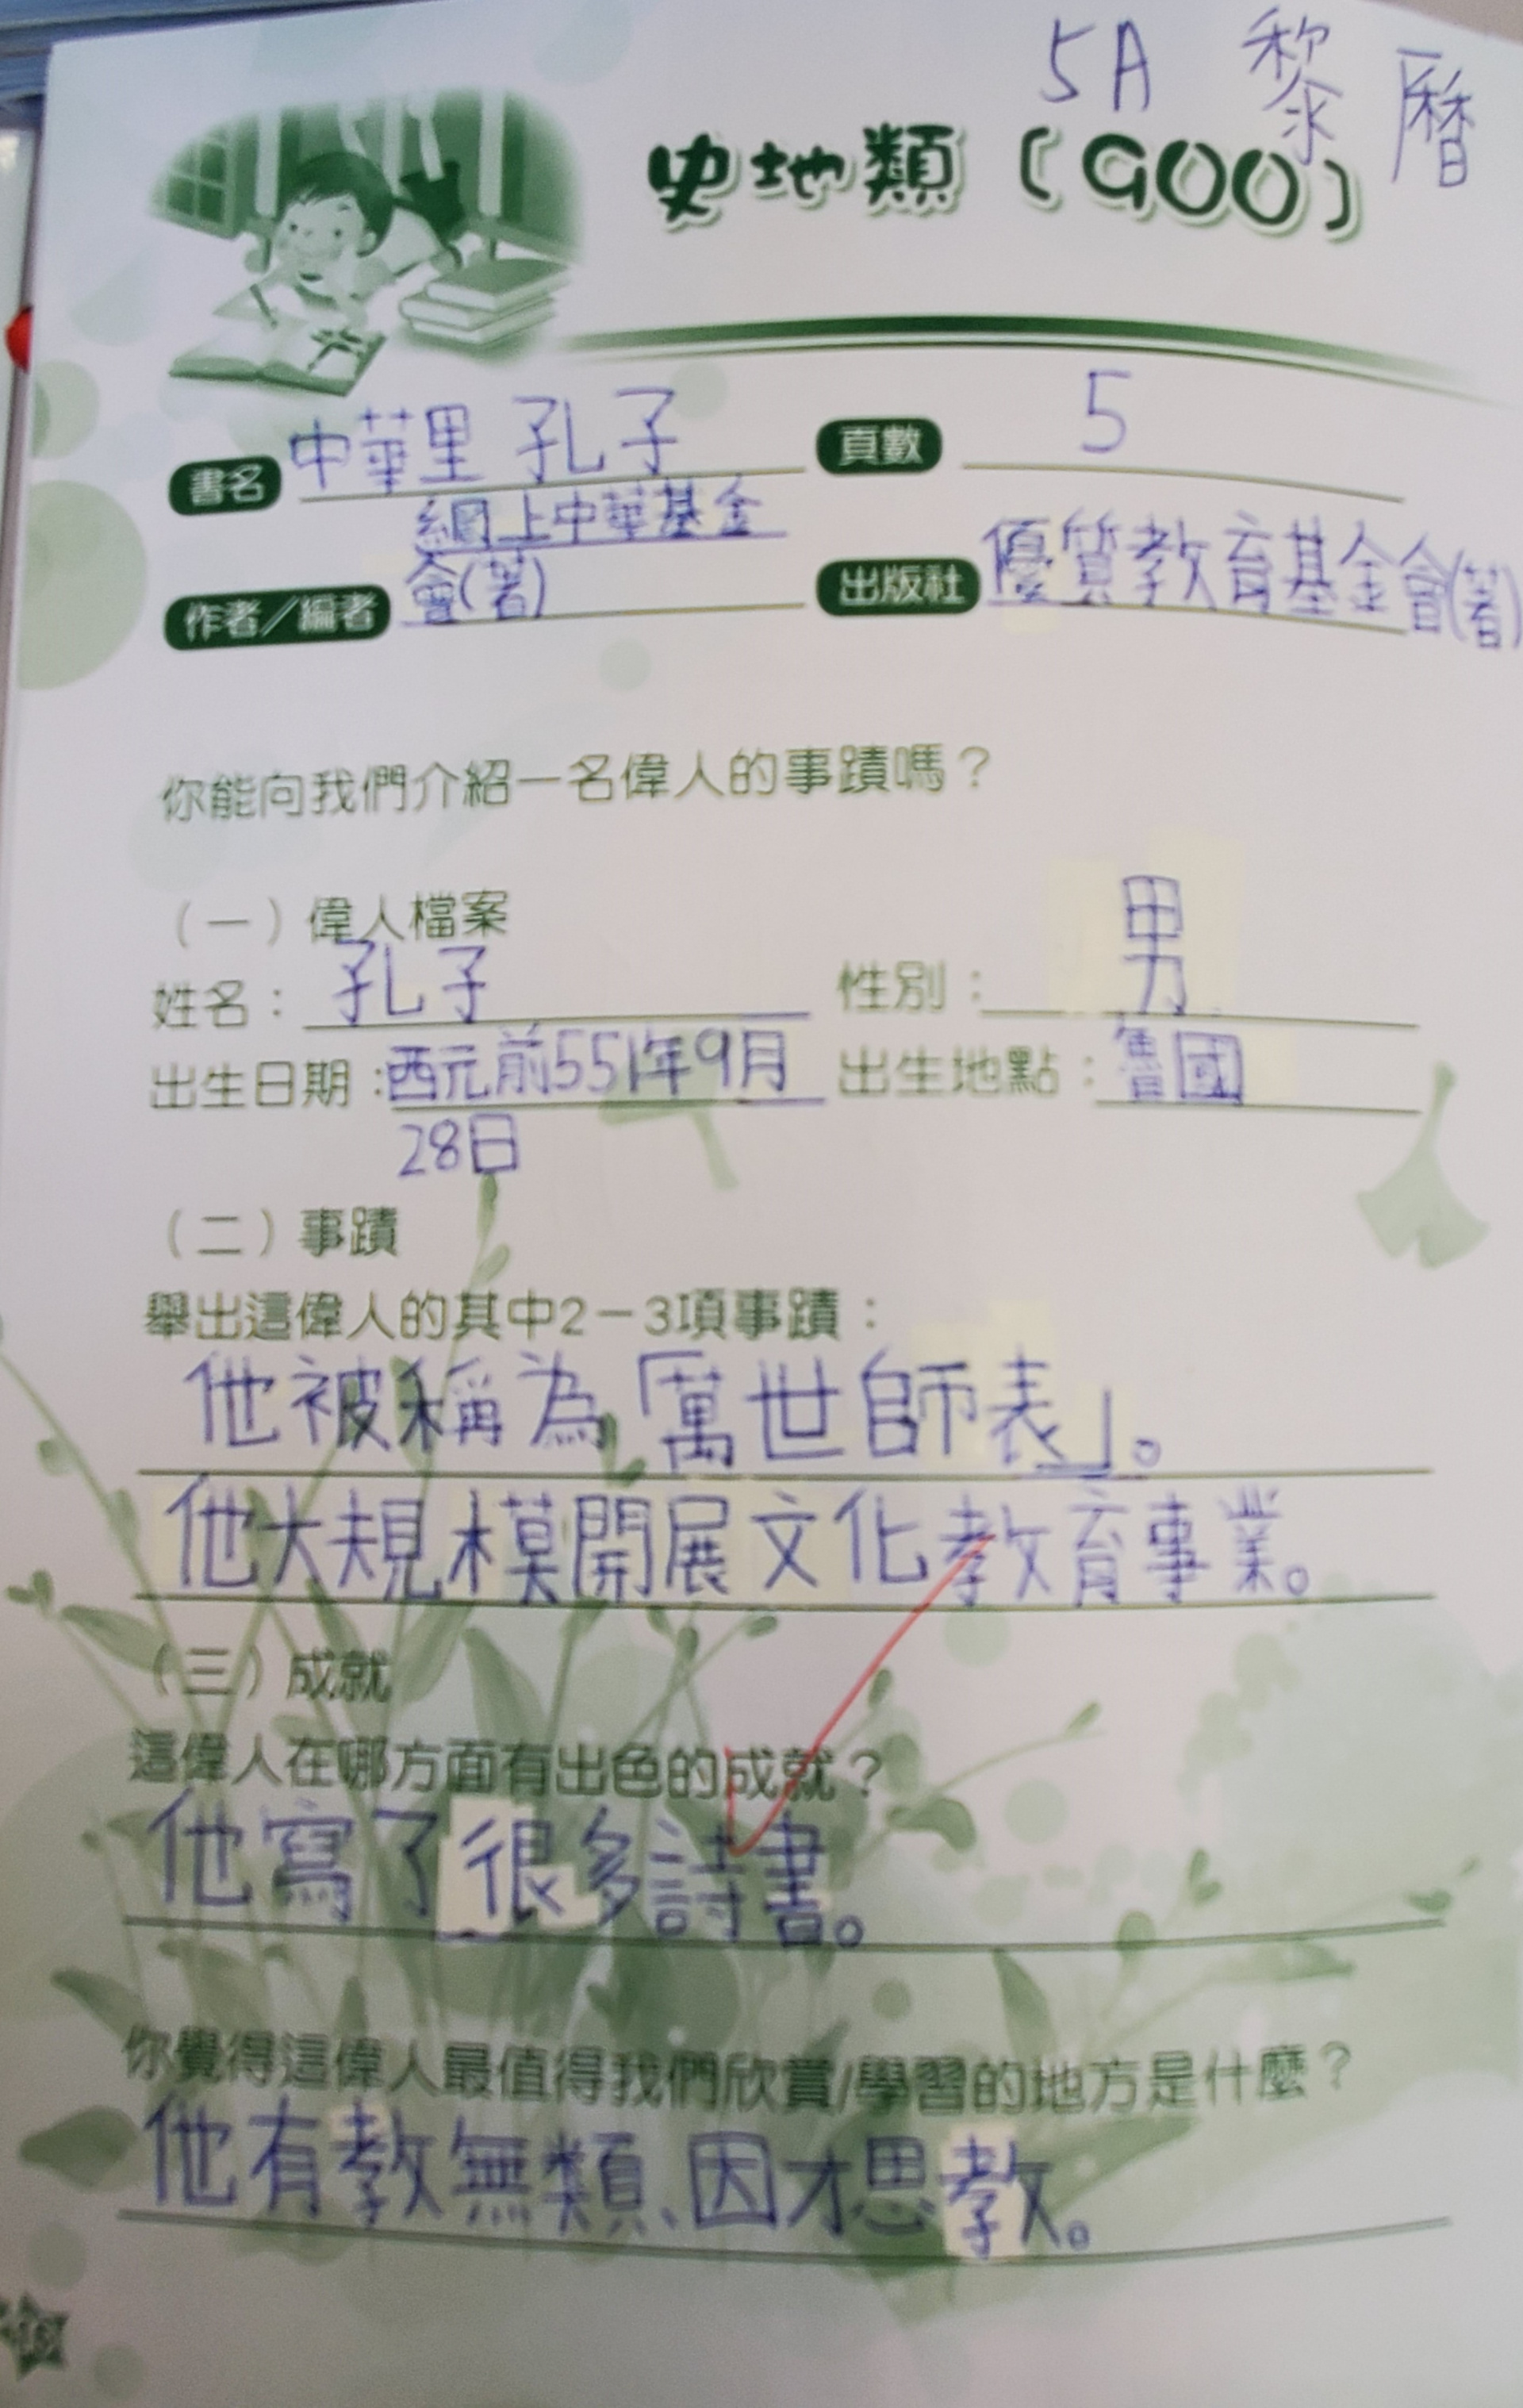 5A 黎 曆
史地類〔900〕
書名 中華里 孔子 頁數 5
作者／編者 網上中華基金會(著) 出版社 優質教育基金會(著)
你能向我們介紹一名偉人的事蹟嗎？
（一）偉人檔案
姓名： 孔子 性別： 男
出生日期：西元前551年9月 出生地點：魯國
28日
（二）事蹟
舉出這偉人的其中2－3項事蹟：
他被稱為「萬世師表」。
他大規模開展文化教育事業。
（三）成就
這偉人在哪方面有出色的成就？
他寫了很多詩書。
你覺得這偉人最值得我們欣賞/學習的地方是什麼？
他有教無類、因才思教。